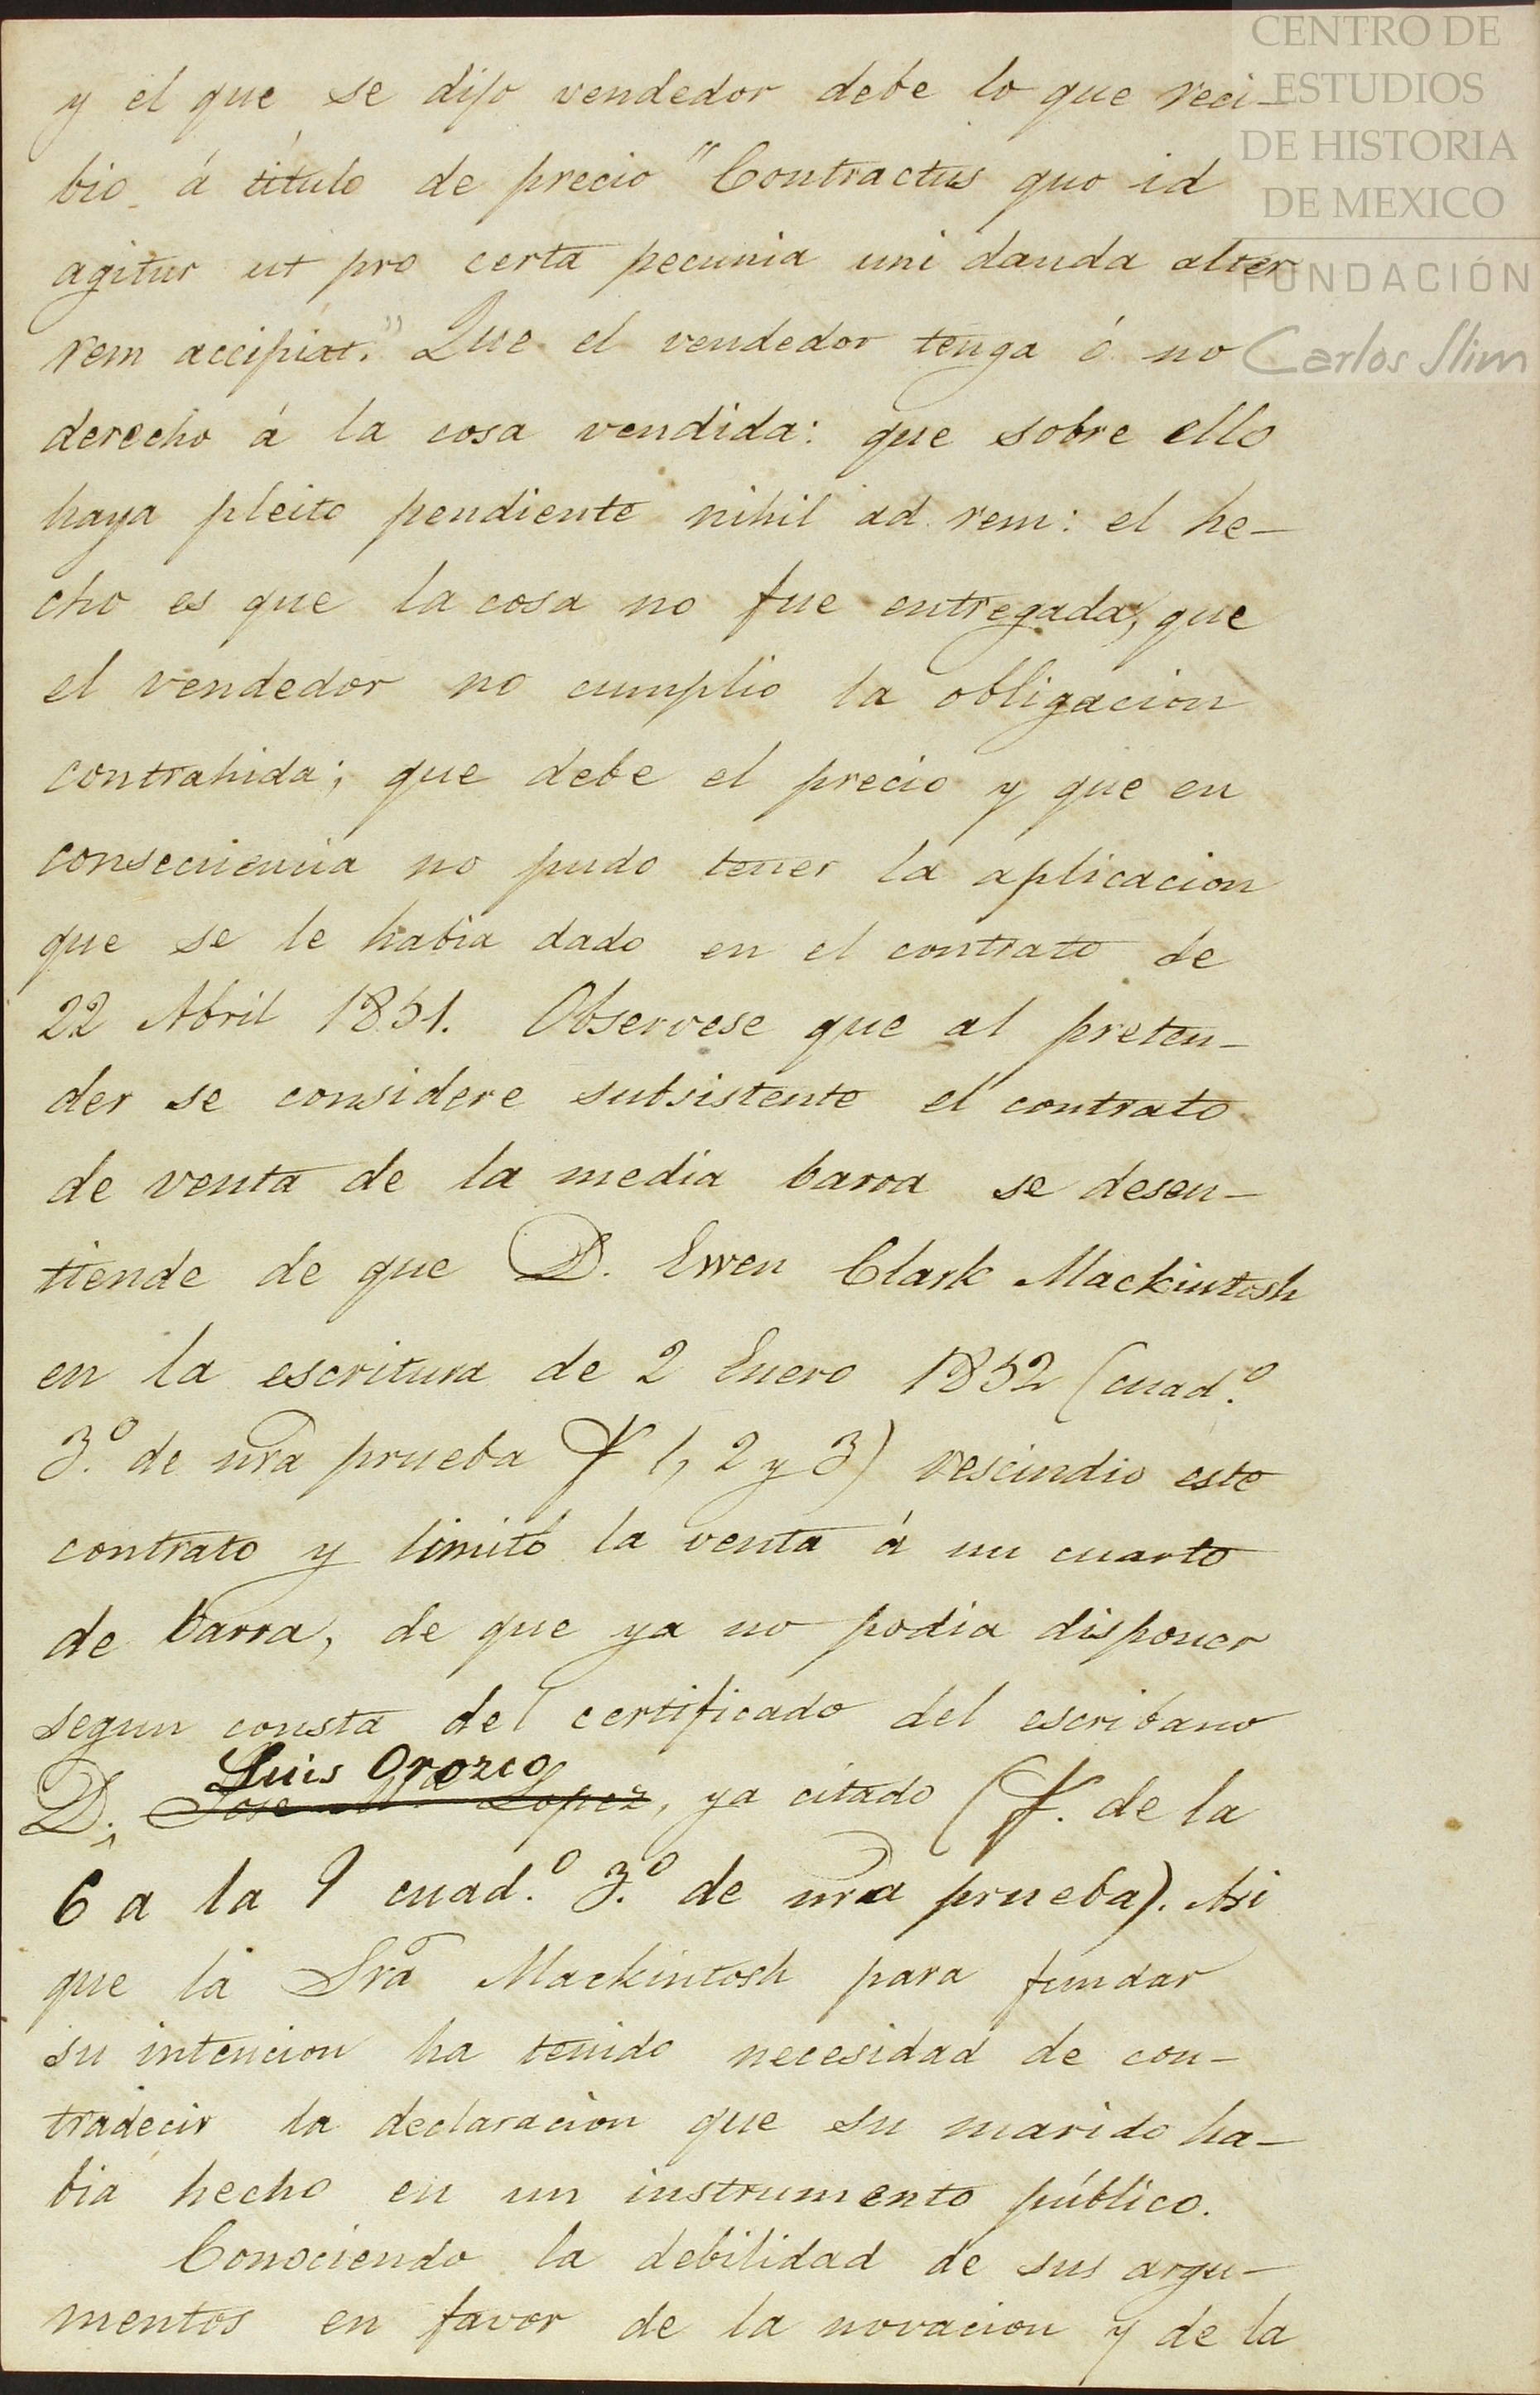 CENTRO DE
ESTUDIOS
DE HISTORIA
DE MEXICO
FUNDACIÓN
Carlos Slim
y el que se dijo vendedor debe lo que reci-
bio á titulo de precio "Contractus quo id
agitur ut pro certa pecunia uni danda alter
rem accipiat." Que el vendedor tenga ó no
derecho á la cosa vendida: que sobre ello
haya pleito pendiente nihil ad rem: el he-
cho es que la cosa no fue entregada, que
el vendedor no cumplio la obligacion
contrahida; que debe el precio y que en
consecuencia no pudo tener la aplicacion
que se le habia dado en el contrato de
22 Abril 1851. Observese que al preten-
der se considere subsistente el contrato
de venta de la media barra se desen-
tiende de que D. Ewen Clark Mackintosh
en la escritura de 2 Enero 1852 (cuad.º
3.º de nra prueba f 1, 2 y 3) rescindio este
contrato y limitó la venta á un cuarto
de barra, de que ya no podia disponer
segun consta del certificado del escribano
Luis Orozco
D. Jose Mª Lopez, ya citado (f. de la
6 a la 9 cuad.º 3.º de nra prueba). Asi
que la Sra Mackintosh para fundar
su intencion ha tenido necesidad de con-
tradecir la declaracion que su marido ha-
bia hecho en un instrumento público.
Conociendo la debilidad de sus argu-
mentos en favor de la novacion y de la